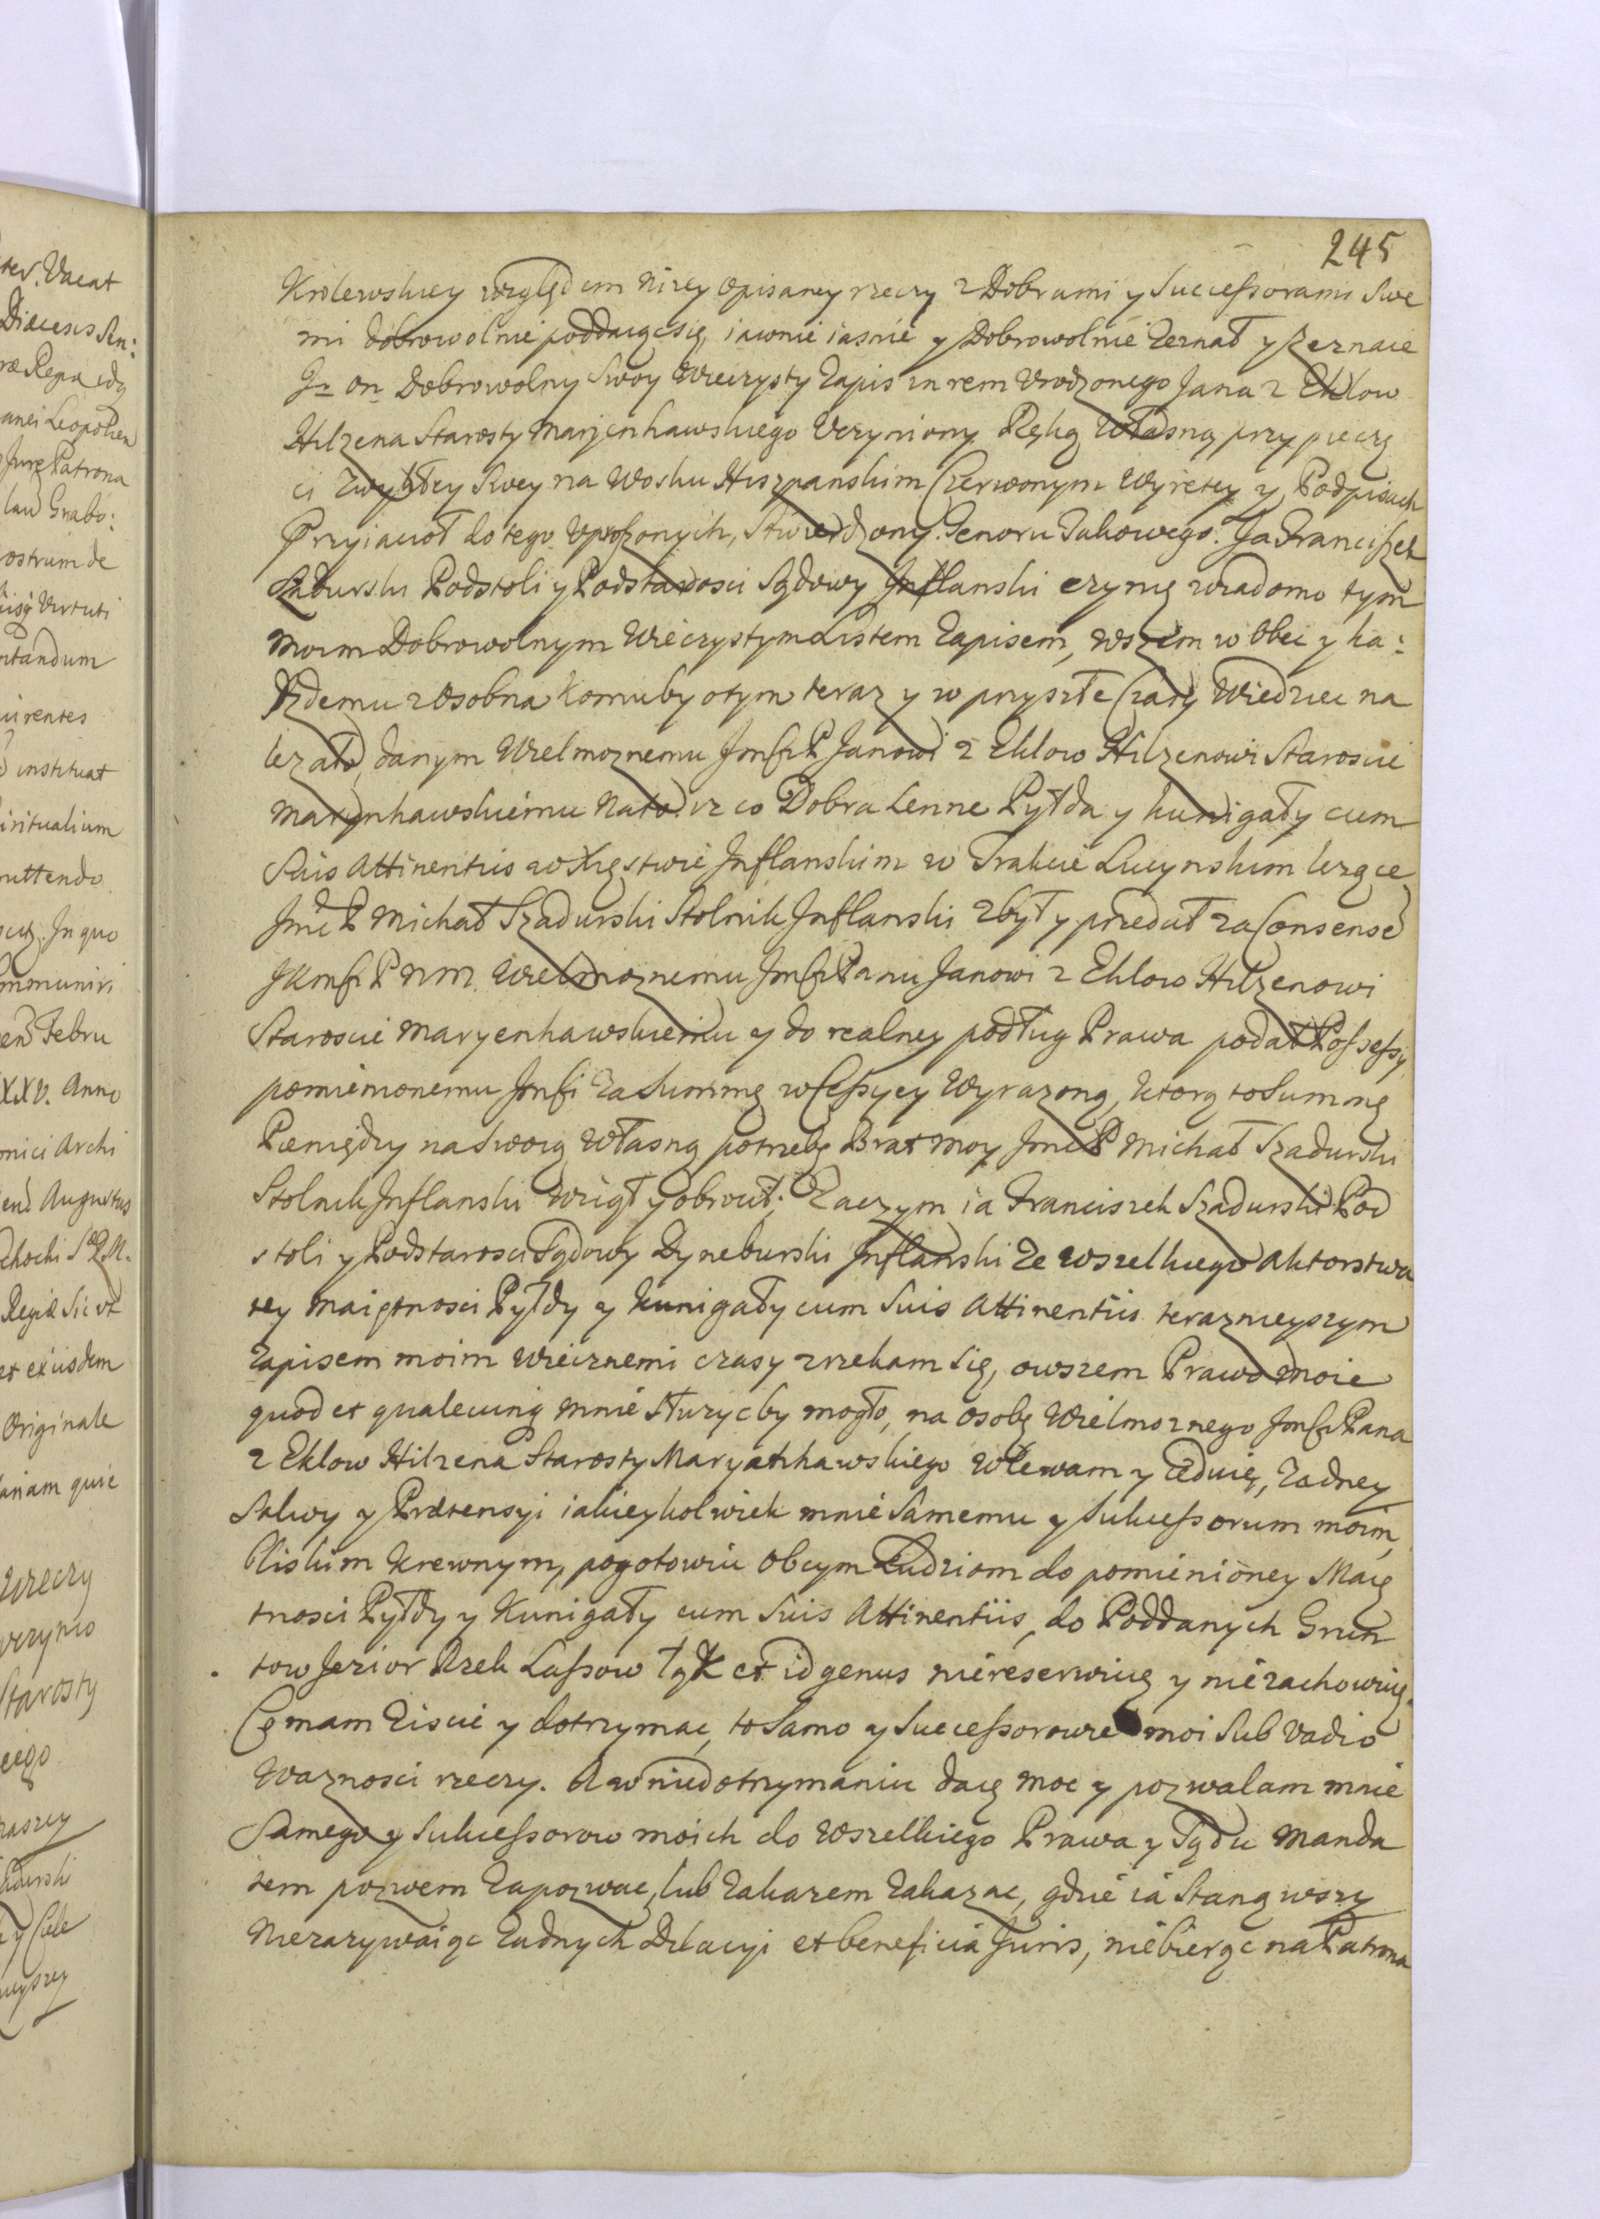 245
Krolewskiey względem niżey opisaney rzeczy z Dobrami y Successorami Swe
mi dobrowolnie poddaiąc się, iawnie iasnie y Dobrowolnie Zeznał y zeznaie
Iż on Dobrowolny Swoy Wieczysty Zapis in rem Urodzonego Jana z Eklow
Hilzena Starosty Maryenhawskiego Uczyniony Ręką Własną przy pieczę
ci Zwykłey Swey na Wosku Hiszpanskim Czerwonym Wyrętey y Podpisach
Przyiacioł do tego uproszonych, Stwierdzony. Tenoru Takowego. Ja Franciszek
Szadurski Podstoli y Podstarosci Sądowy Inflanski czynię wiadomo tym
Moim Dobrowolnym Wieczystym Listem Zapisem, wszem w Obec y ka:
żdemu z Osobna Komuby otym teraz y w przyszłe Czasy Wiedziec na
lezało, danym Wielmoznemu Jmści P. Janowi z Eklow Hilzenowi Staroscie
Marynhawskiemu Na to iż co Dobra Lenne Pyłda y Kunigały cum
Suis Attinentiis w Xięstwie Inflanskim w Trakcie Lucynskim leżące
Jmć P. Michał Szadurski Stolnik Inflanski zbył y przedał za Consensem
JKmści P. N. M. Wielmoznemu Jmści Panu Janowi z Eklow Hilzenowi
Staroscie Maryenhawskiemu y do realney podług Prawa podał Possessy,
pomienionemu Jmści Za Summę w Cessyey Wyrazoną, Ktorą to Summę
Pieniędzy na Swoią Własną potrzebę Brat moy Jmć P. Michał Szadurski
Stolnik Inflanski Wziął y obrocił; Zaczym ia Franciszek Szadurski Pod
stoli y Podstarosci Sądowy Dyneburski Inflanski Ze wszelkiego Aktorstwa
tey Maiętnosci Pyłdy y Kunigały cum Suis Attinentiis teraznieyszym
Zapisem moim wiecznemi czasy zrzekam się, owszem Prawo moie
quod et qualecunq mnie słuzyc by mogło, na osobę Wielmoznego Jmści Pana
z Eklow Hilzena Starosty Maryahhawskiego Wlewam y Ceduię, Zadney
Salwy y Prætensyi iakieykolwiek mnie Samemu y Sukcessorum moim,
Bliskim Krewnym, pogotowiu obcym Ludziom do pomienioney Maię
tnosci Pyłdy y Kunigały cum Suis Attinentiis, do Poddanych Grun
tow Jezior Rzek Lassow Łąk et id genus nie reserwuię y nie zachowuię.
Co mam Ziscic y dotrzymac, to Samo y Successorowie moi Sub Vadio
Waznosci rzeczy. A w niedotrzymaniu daię moc y pozwalam mnie
Samego y Sukcessorow moich do wszelkiego Prawa y Sądu Manda
tem pozwem Zapozwac, lub Zakazem Zakazac, gdzie ia Stanąwszy
Niezazywaiąc Zadnych Dilacyi et beneficia Juris, niebiorąc na Patrona